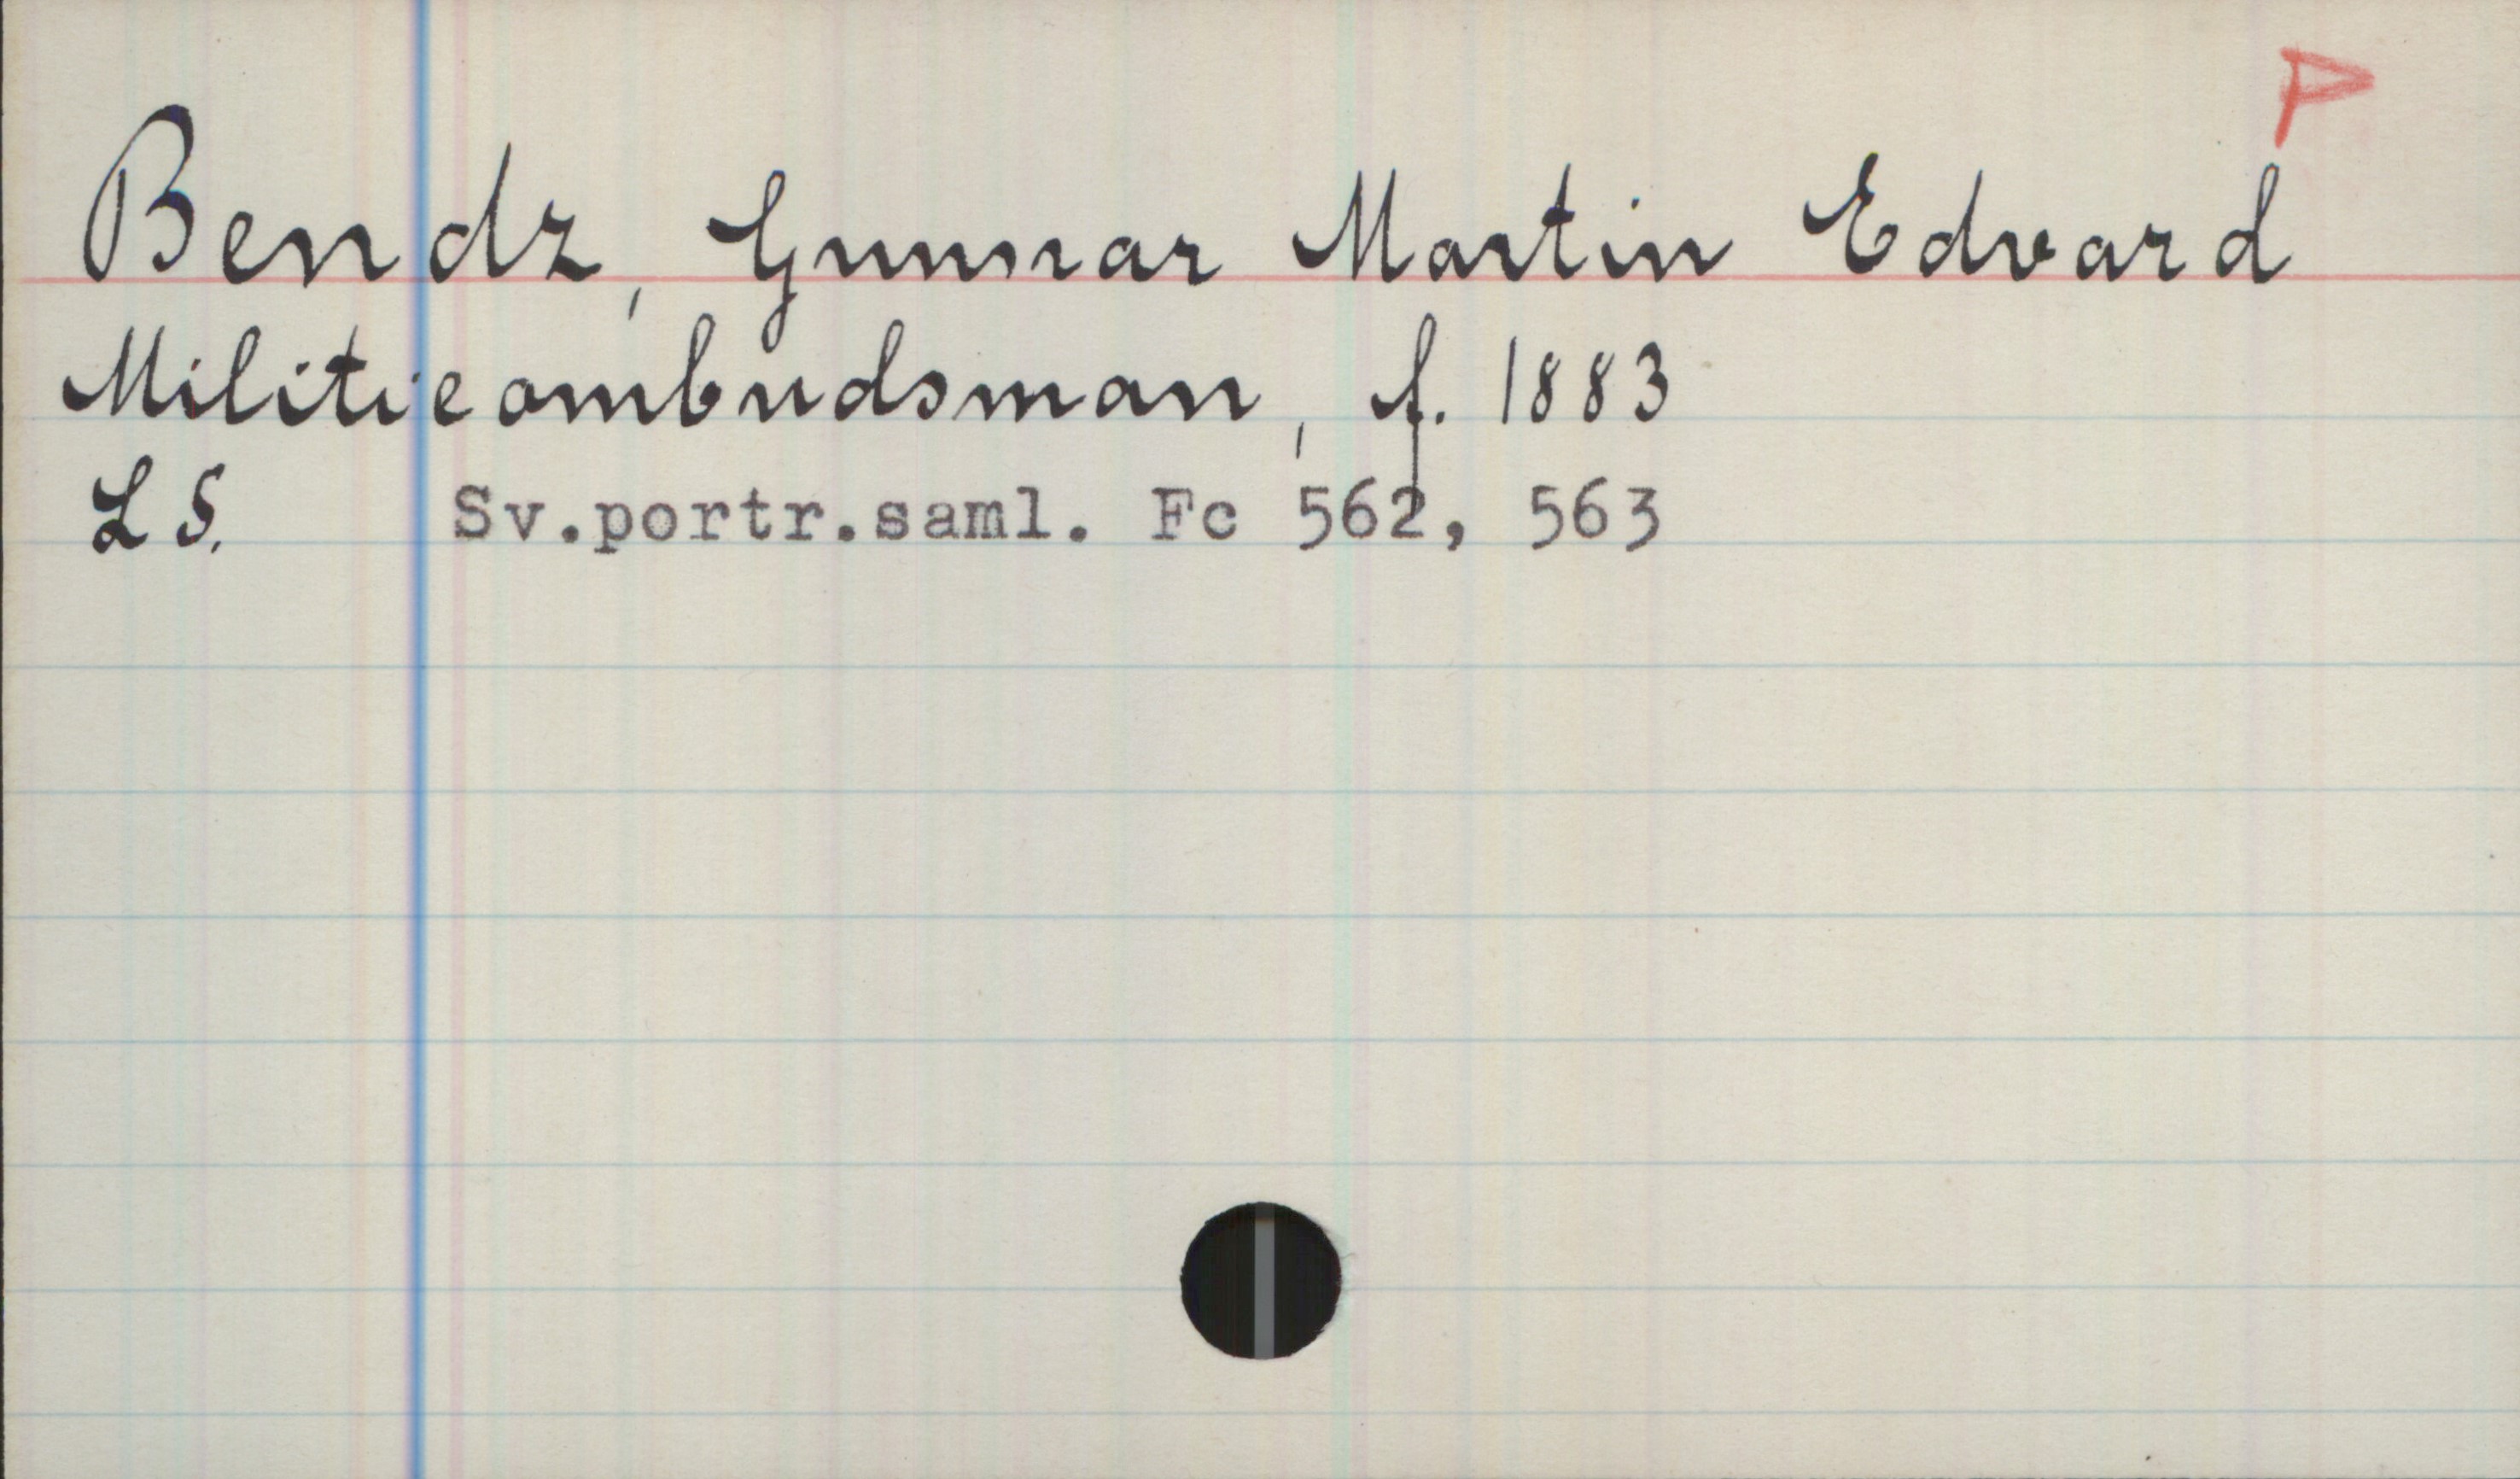 P
Bendz, Gunnar Martin Edvard
Militieombudsman, f. 1883
L S. Sv.portr.saml. Fc 562, 563